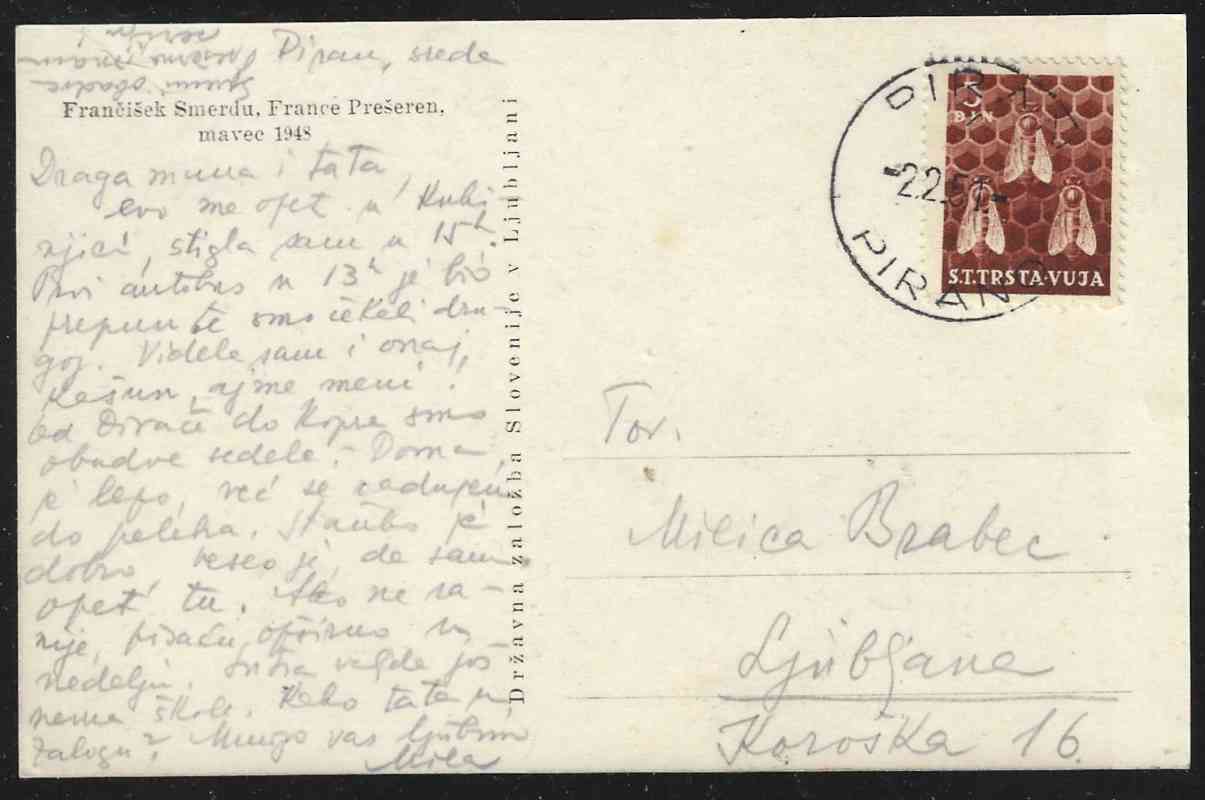 Piran, sreda
Frančišek Smerdu, France Prešeren,
mavec 1948
Draga mama i tata,
evo me opet u
stigla sam u 15h.
Prvi autobus u 13h je bio
prepun te smo čekali dru-
goj. Videla sam i onaj
ajme meni!
Od Divače do Kopra smo
obadve sedele. Doma
je lepo, već se
do petka. je
dobro, da sam
opet tu. Ako ne ra-
nije, pisaću opširno u
nedelju. Sutra valjda još
nema škole. Kako tata u
zalogu? Mnogo vas ljubim
Mila
Državna založba Slovenije v Ljubljani
PIRAN
-2.2.51-
PIRANO
5
DIN
S.T.TRSTA-VUJA
Tov.
Milica Brabec
Ljubljana
Koroška 16.